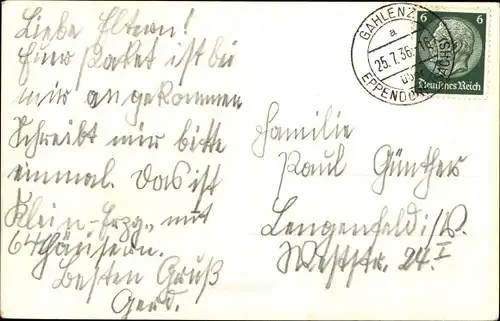 Liebe Eltern!
Euer Paket ist bei
mir angekommen
Schreibt mir bitte
einmal. Das ist
Klein-Erzg. mit
64 Häusern.
Besten Gruß
Gerd.
GAHLENZ
a
25.7.36
EPPENDORF
6 6
Deutsches Reich
Familie
Paul Günther
Lengenfeld i/V.
Weststr. 24 I